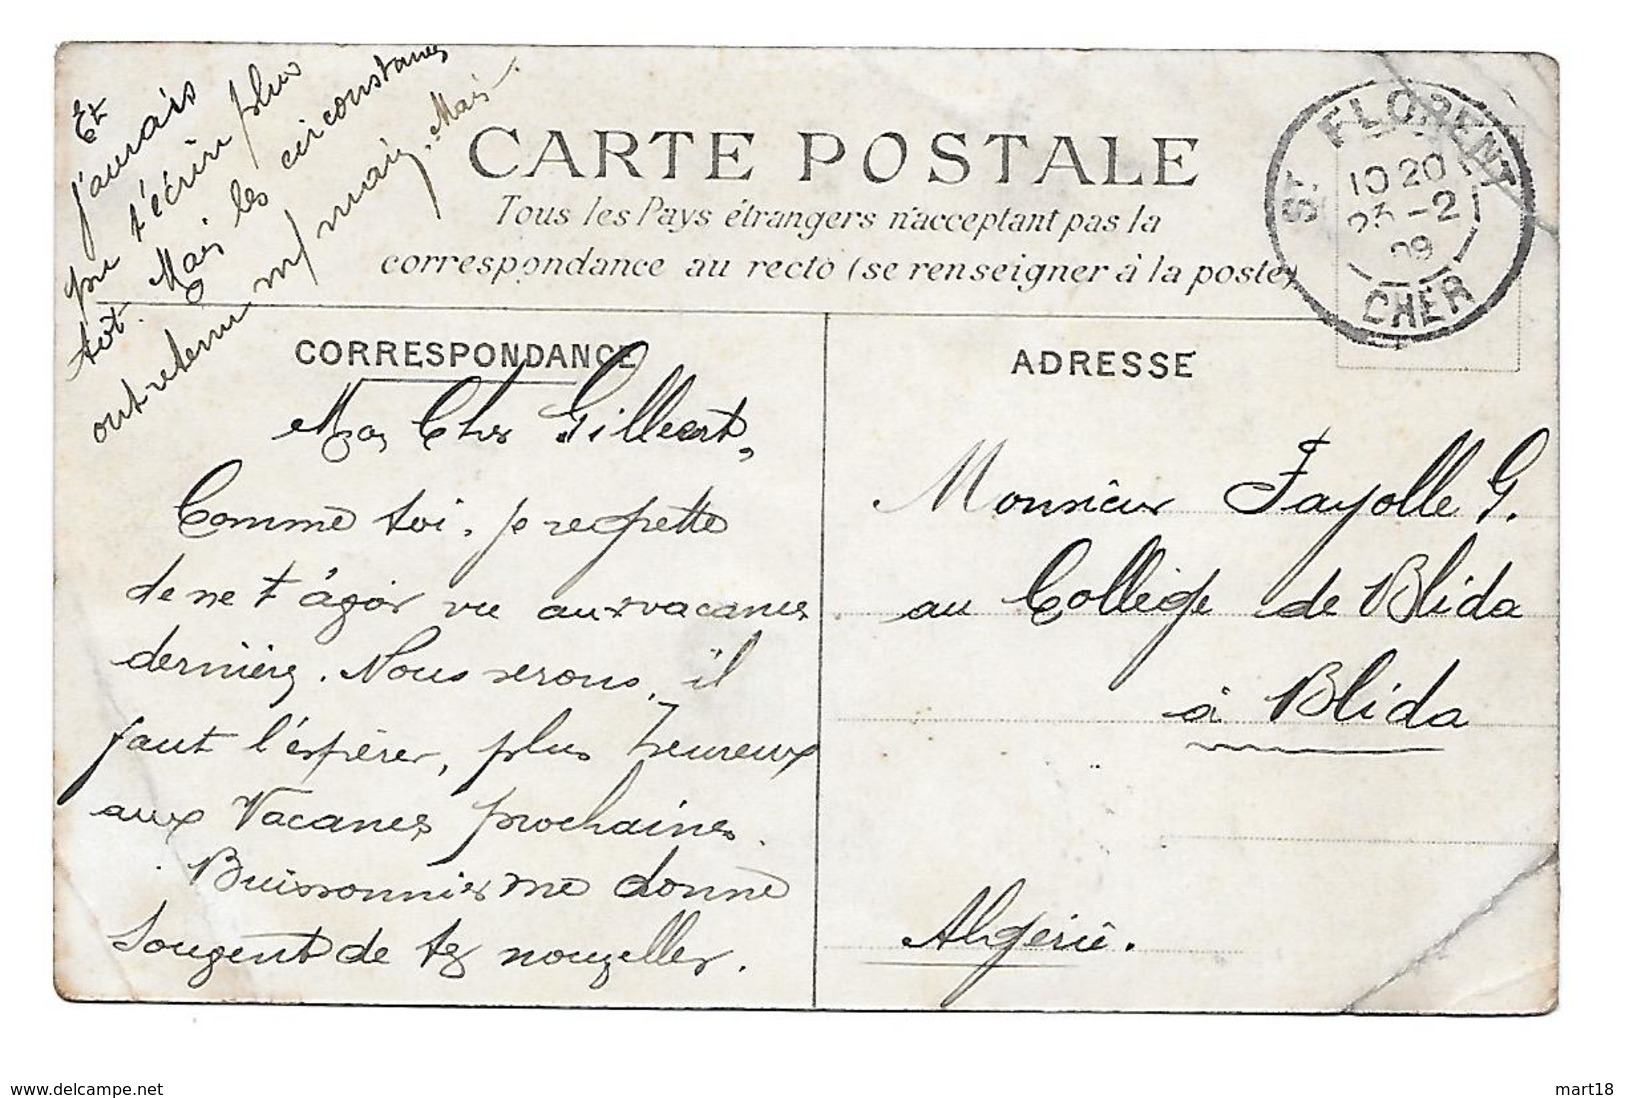 Et
j'aurais
pu t'écrire plus
tôt. Mais les circonstances
ont retenu m/ main. Mais
CARTE POSTALE
Tous les Pays étrangers n'acceptant pas la
correspondance au recto (se renseigner à la poste)
ST FLORENT
10 20
25 -2
09
CHER
CORRESPONDANCE
ADRESSE
Mon Cher Gilbert,
Comme toi, je regrette
de ne t'avoir vu aux vacances
dernières. Nous serons, il
faut l'espérer, plus heureux
aux Vacances prochaines.
Buissonnier me donne
Souvent de tes nouvelles.
Monsieur Fayolle G.
au Collège de Blida
à Blida
Algérie.
www.delcampe.net
mart18